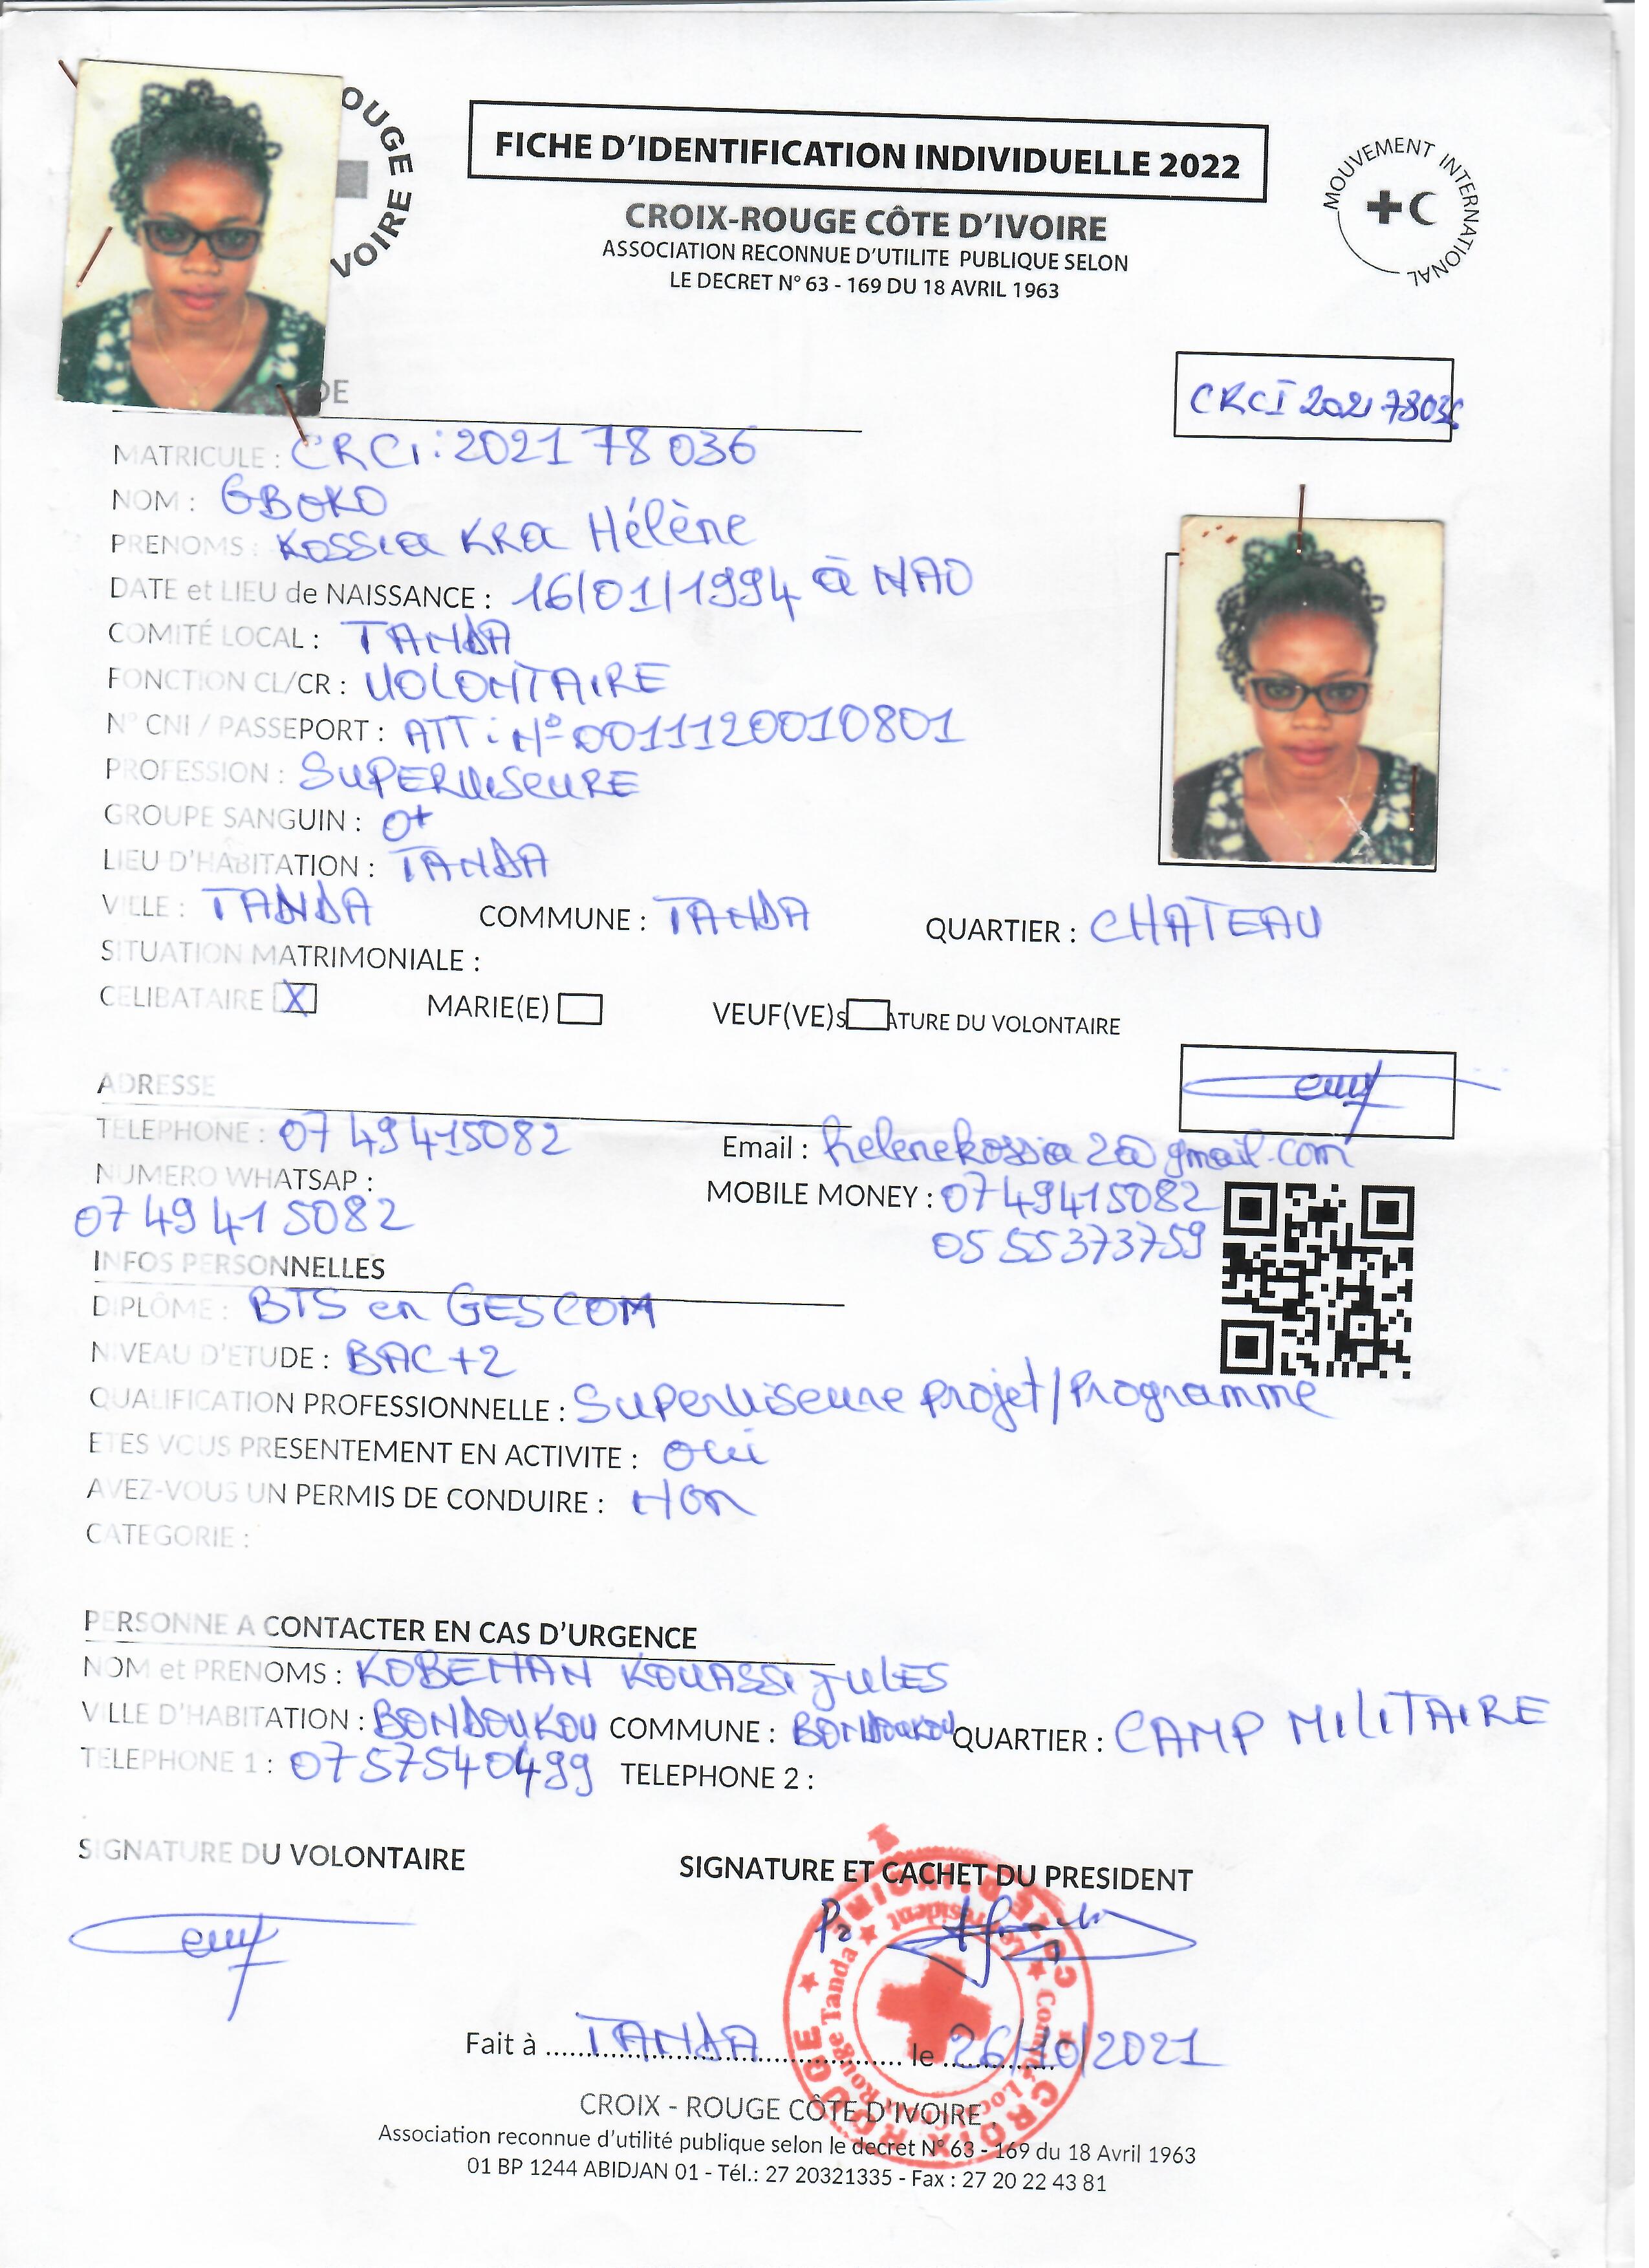 OUGE
VOIRE
FICHE D'IDENTIFICATION INDIVIDUELLE 2022
MOUVEMENT INTERNATIONAL
CROIX-ROUGE CÔTE D'IVOIRE
ASSOCIATION RECONNUE D'UTILITE PUBLIQUE SELON
LE DECRET N° 63 - 169 DU 18 AVRIL 1963
DE
CRCI 2021 78036
MATRICULE : CRCi : 2021 78 036
NOM : GBOKO
PRENOMS : KOSSIA KRA Hélène
DATE et LIEU de NAISSANCE : 16/01/1994 à NAO
COMITÉ LOCAL : TANDA
FONCTION CL/CR : VOLONTAIRE
N° CNI / PASSEPORT : ATT : N° 0011120010801
PROFESSION : SUPERViSeURE
GROUPE SANGUIN : O+
LIEU D'HABITATION : TANDA
VILLE : TANDA COMMUNE : TANDA QUARTIER : CHATEAU
SITUATION MATRIMONIALE :
CELIBATAIRE X MARIE(E) VEUF(VE)S ATURE DU VOLONTAIRE
ADRESSE
TELEPHONE : 07 49 415082 Email : helenekossia2@gmail.com
NUMERO WHATSAP : MOBILE MONEY : 0749415082
07 49 41 5082 05 55 373759
INFOS PERSONNELLES
DIPLÔME : BTS en GESCOM
NIVEAU D'ETUDE : BAC+2
QUALIFICATION PROFESSIONNELLE : Superviseure projet/Programme
ETES VOUS PRESENTEMENT EN ACTIVITE : Oui
AVEZ-VOUS UN PERMIS DE CONDUIRE : Non
CATEGORIE :
PERSONNE A CONTACTER EN CAS D'URGENCE
NOM et PRENOMS : KOBENAN KOUASSi JULES
VILLE D'HABITATION : BONDOUKOU COMMUNE : BONDOUKOU QUARTIER : CAMP MILITAIRE
TELEPHONE 1 : 0757540499 TELEPHONE 2 :
SIGNATURE DU VOLONTAIRE SIGNATURE ET CACHET DU PRESIDENT
CROIX ROUGE CÔTE D'IVOIRE
Comité Local Croix Rouge Tanda
Le Président
Fait à TANDA le 26/10/2021
CROIX - ROUGE CÔTE D'IVOIRE
Association reconnue d'utilité publique selon le decret N° 63 - 169 du 18 Avril 1963
01 BP 1244 ABIDJAN 01 - Tél.: 27 20321335 - Fax : 27 20 22 43 81